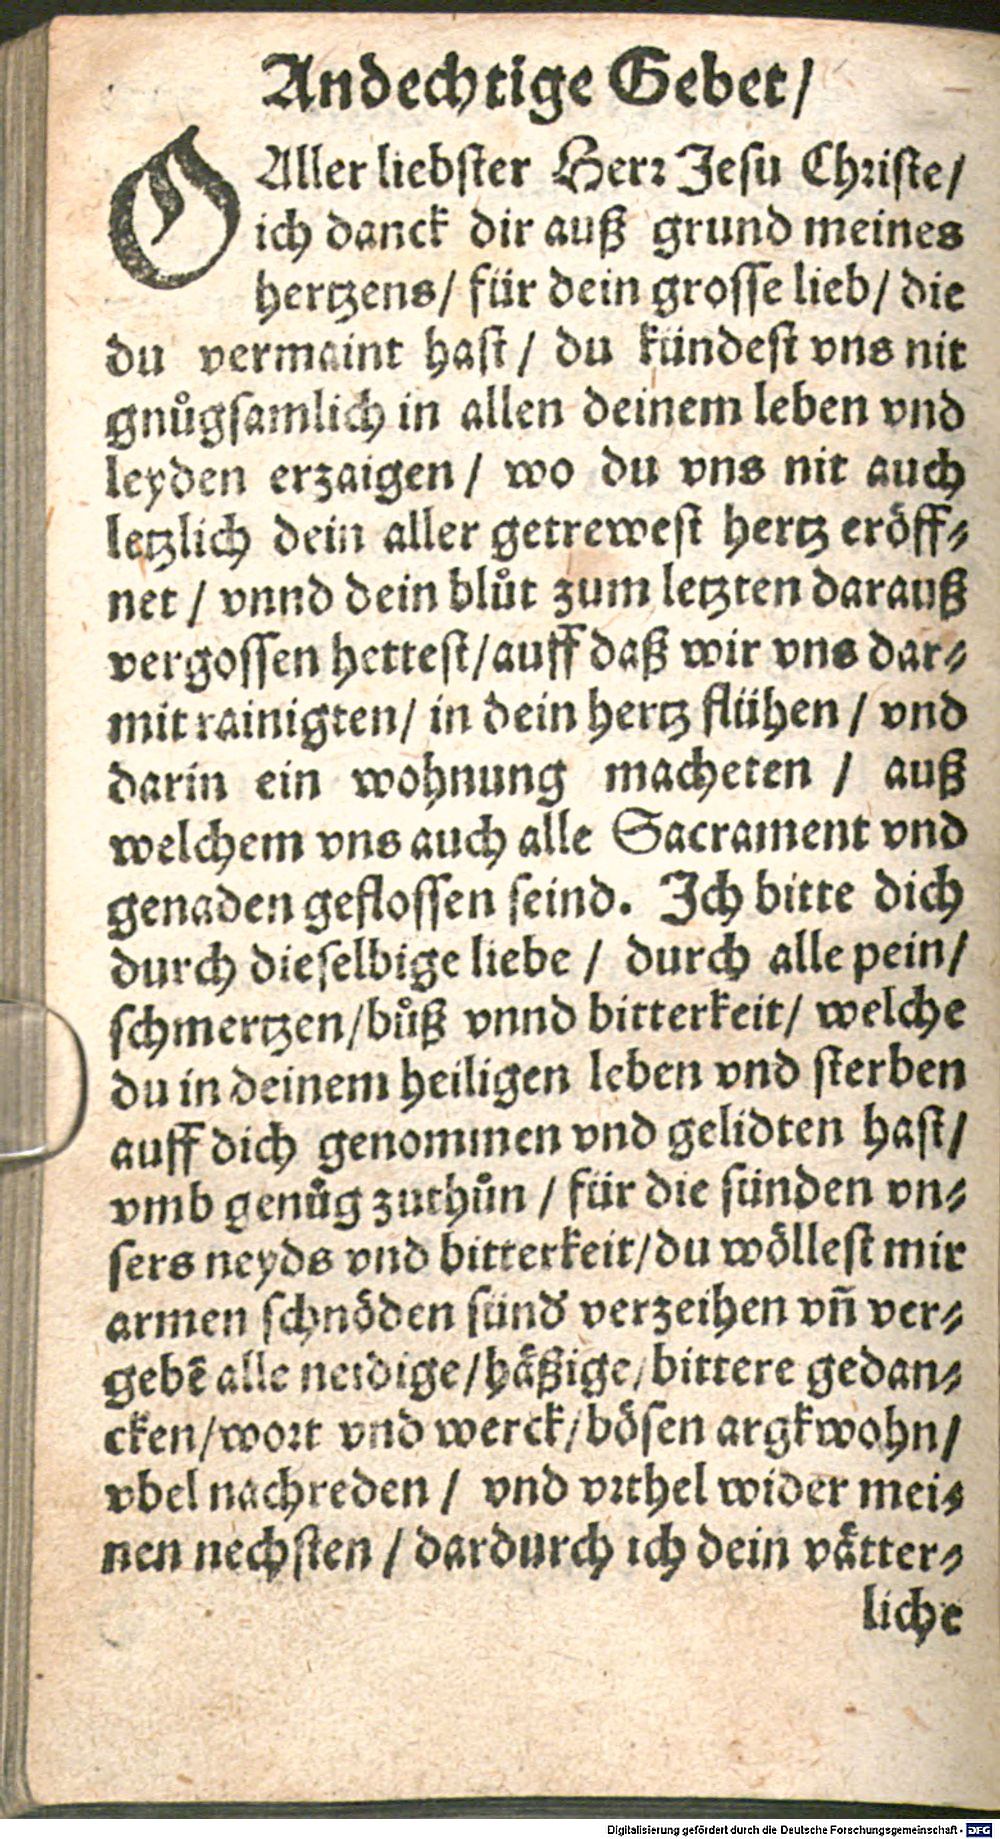 Andechtige Gebet/
O Aller liebster Herr Jesu Christe/
ich danck dir auß grund meines
hertzens/ für dein grosse lieb/ die
du vermaint hast/ du kündest vns nit
gnůgsamlich in allen deinem leben vnd
leyden erzaigen/ wo du vns nit auch
letzlich dein aller getrewest hertz eröff⸗
net/ vnnd dein blůt zum letzten darauß
vergossen hettest/auff daß wir vns dar⸗
mit rainigten/ in dein hertz flühen/ vnd
darin ein wohnung macheten / auß
welchem vns auch alle Sacrament vnd
genaden geflossen seind. Ich bitte dich
durch dieselbige liebe/ durch alle pein/
schmertzen/bůß vnnd bitterkeit/ welche
du in deinem heiligen leben vnd sterben
auff dich genommen vnd gelidten hast/
vmb genůg zuthůn/ für die sünden vn⸗
sers neyds vnd bitterkeit/du wöllest mir
armen schnöden sünd' verzeihen vñ ver⸗
gebẽ alle neidige/häßige/bittere gedan⸗
cken/wort vnd werck/bösen argkwohn/
vbel nachreden/ vnd vrthel wider mei⸗
nen nechsten/dardurch ich dein vätter⸗
liche
Digitalisierung gefördert durch die Deutsche Forschungsgemeinschaft - DFG